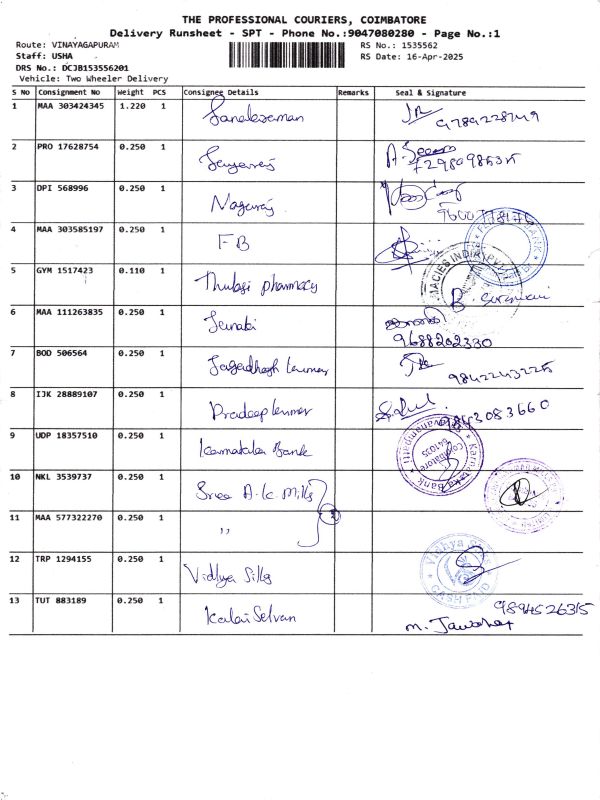 THE PROFESSIONAL COURIERS, COIMBATORE
Delivery Runsheet - SPT - Phone No.:9047080280 - Page No.:1
Route: VINAYAGAPURAM
RS No.: 1535562
Staff: USHA
RS Date: 16-Apr-2025
DRS No.: DCJB153556201
Vehicle: Two Wheeler Delivery
S No Consignment No Weight PCS Consignee Details Remarks Seal & Signature
1 MAA 303424345 1.220 1
2 PRO 17628754 0.250 1
3 DPI 568996 0.250 1 Nagaraj
4 MAA 303585197 0.250 1 FB
5 GYM 1517423 0.110 1 Thulasi pharmacy
6 MAA 111263835 0.250 1 Janaki
9688202330
7 BOD 506564 0.250 1 Jagadhesh kumar
9842243225
8 IJK 28889107 0.250 1 Pradeep kumar
9843083660
9 UDP 18357510 0.250 1 Karnataka Bank
Karnataka Bank
Coimbatore
641035
10 NKL 3539737 0.250 1 Sree A.K Mills
11 MAA 577322270 0.250 1 ,,
12 TRP 1294155 0.250 1 Vidhya Silks
CASH PAID
13 TUT 883189 0.250 1 Kalai Selvan
9894526315
M. Jawahar